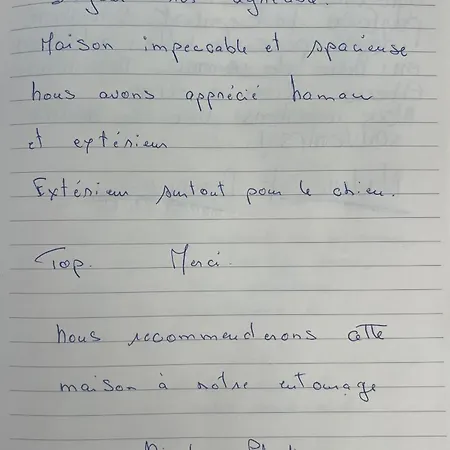 Maison impeccable et spacieuse
nous avons apprécié hamam
et extérieur
Extérieur surtout pour le chien.
Top. Merci.
nous recommenderons cette
maison à notre entourage